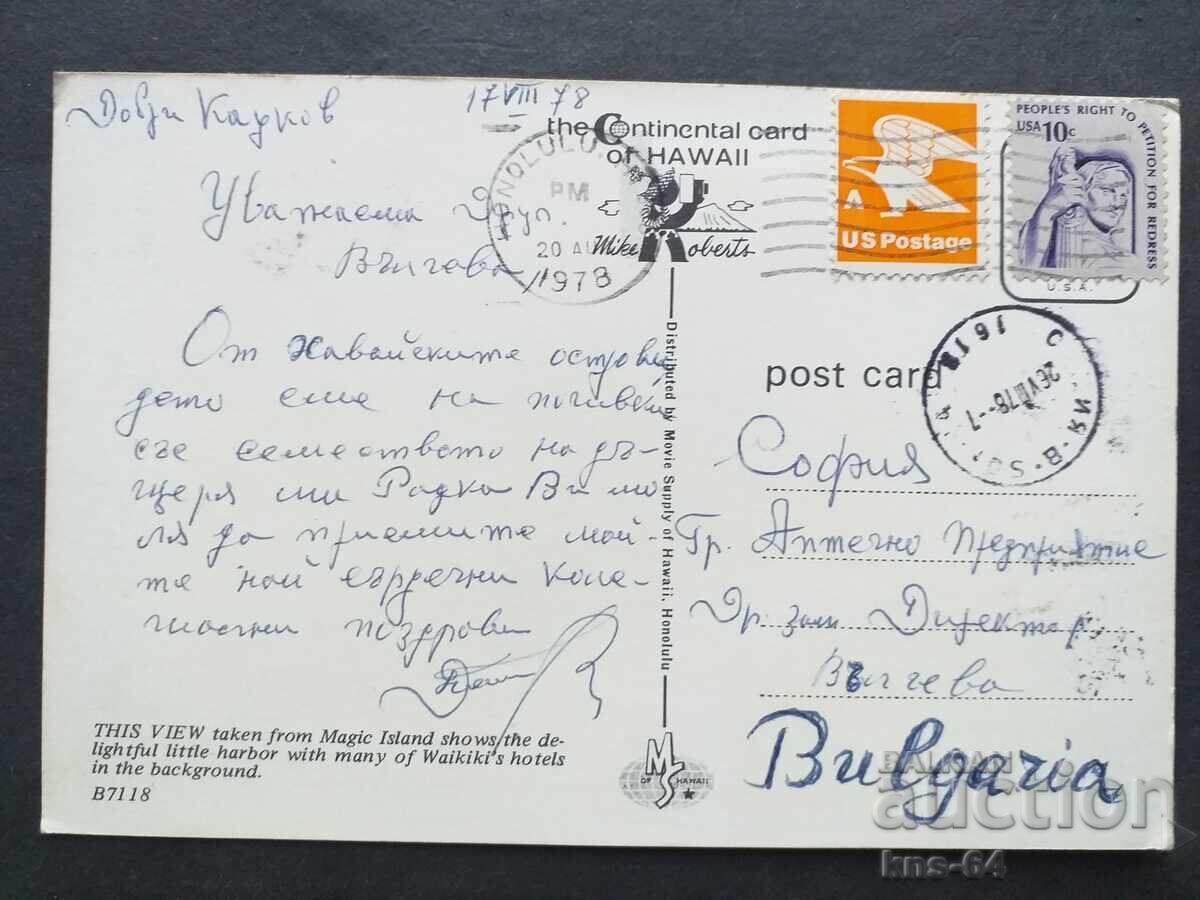 Добри
17 VIII 78
Уважаема Друг.
Вългева
От Хавайските острови
дето сме на почивка
със семейството на дъ-
щеря ми Радка Ви мо-
ля да приемите мой-
те най сърдечни коле-
гиални поздрави
THIS VIEW taken from Magic Island shows the de-
lightful little harbor with many of Waikiki's hotels
in the background.
B7118
the Continental card
of HAWAII
Mike Roberts
HONOLULU
PM
20 AU
1978
Distributed by Movie Supply of Hawaii, Honolulu
MS
OF HAWAII
A
US Postage
PEOPLE'S RIGHT TO PETITION FOR REDRESS
USA 10c
U.S.A.
26 VIII 78-7
post card
София
Гр. Аптечно Предприятие
Др. зам Директор
Вългева
Bulgaria
BALKAN
auction
kns-64